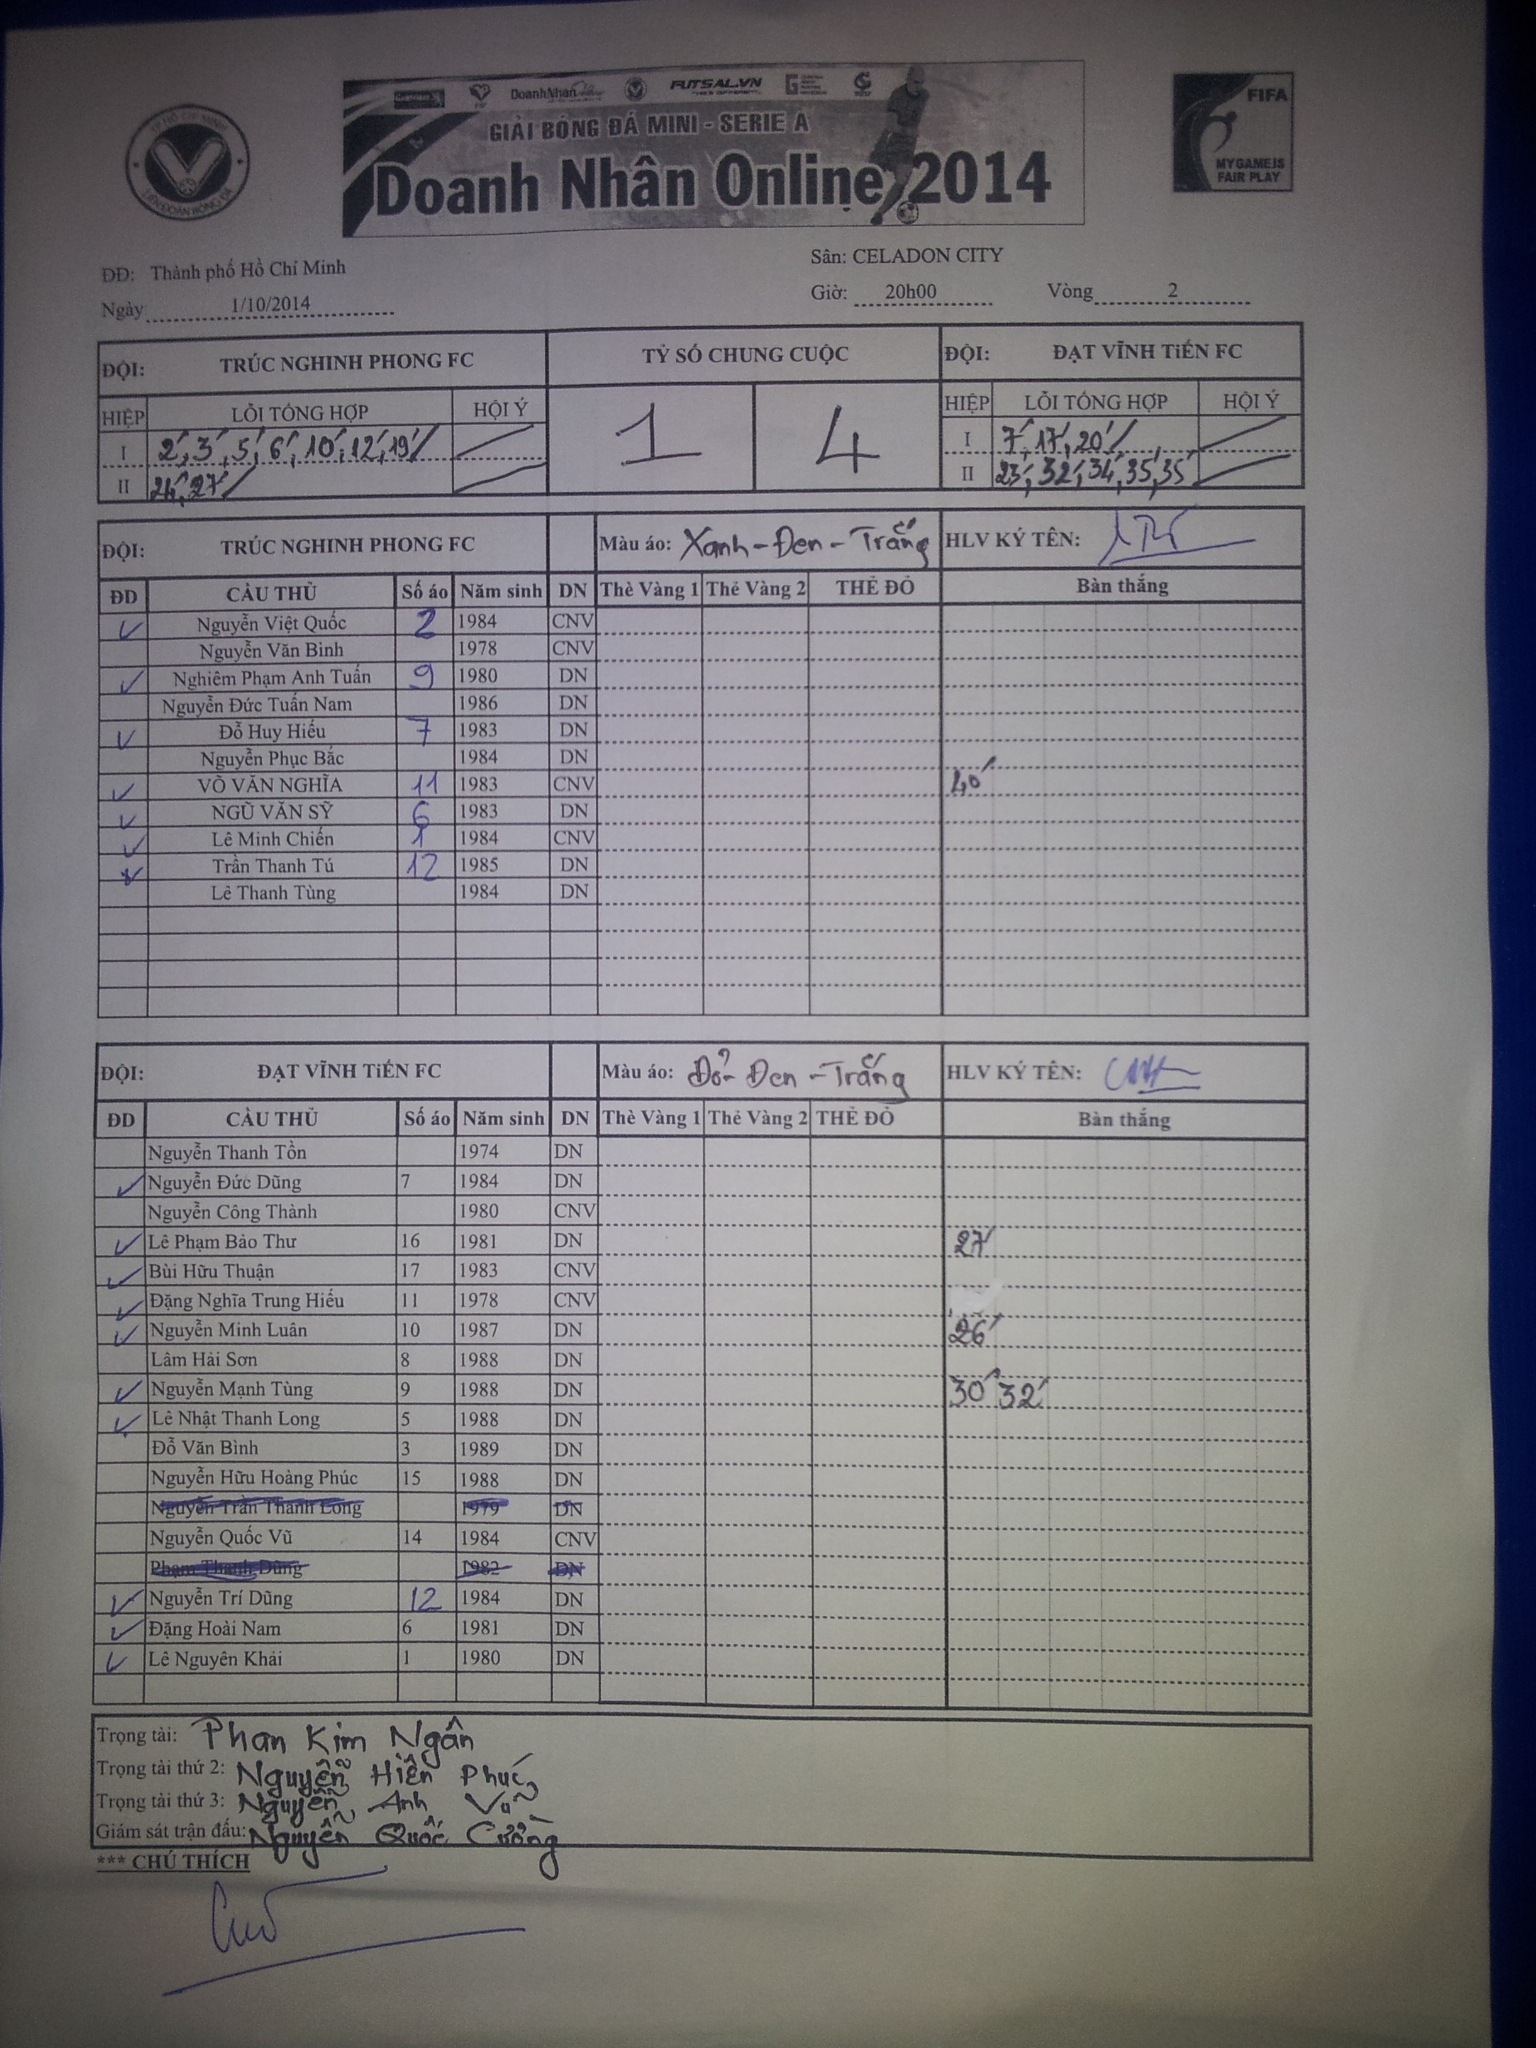 TP.HỒ CHÍ MINH
LIÊN ĐOÀN BÓNG ĐÁ
DoanhNhan FUTSAL.VN
GIẢI BÓNG ĐÁ MINI - SERIE A
Doanh Nhân Online 2014
FIFA
MY GAME IS
FAIR PLAY
ĐĐ: Thành phố Hồ Chí Minh Sân: CELADON CITY
Ngày 1/10/2014 Giờ: 20h00 Vòng 2
ĐỘI: TRÚC NGHINH PHONG FC TỶ SỐ CHUNG CUỘC ĐỘI: ĐẠT VĨNH TiẾN FC
HIỆP LỖI TỔNG HỢP HỘI Ý 1 4 HIỆP LỖI TỔNG HỢP HỘI Ý
I 2', 3', 5', 6', 10', 12', 19' I 7', 17', 20'
II 24', 27' II 23', 32', 34', 35', 35'
ĐỘI: TRÚC NGHINH PHONG FC Màu áo: Xanh - Đen - Trắng HLV KÝ TÊN:
ĐD CẦU THỦ Số áo Năm sinh DN Thẻ Vàng 1 Thẻ Vàng 2 THẺ ĐỎ Bàn thắng
Nguyễn Việt Quốc 2 1984 CNV
Nguyễn Văn Binh 1978 CNV
Nghiêm Phạm Anh Tuấn 9 1980 DN
Nguyễn Đức Tuấn Nam 1986 DN
Đỗ Huy Hiếu 7 1983 DN
Nguyễn Phục Bắc 1984 DN
VÕ VĂN NGHĨA 11 1983 CNV 40'
NGŨ VĂN SỸ 6 1983 DN
Lê Minh Chiến 1 1984 CNV
Trần Thanh Tú 12 1985 DN
Lê Thanh Tùng 1984 DN
ĐỘI: ĐẠT VĨNH TiẾN FC Màu áo: Đỏ - Đen - Trắng HLV KÝ TÊN:
ĐD CẦU THỦ Số áo Năm sinh DN Thẻ Vàng 1 Thẻ Vàng 2 THẺ ĐỎ Bàn thắng
Nguyễn Thanh Tồn 1974 DN
Nguyễn Đức Dũng 7 1984 DN
Nguyễn Công Thành 1980 CNV
Lê Phạm Bảo Thư 16 1981 DN 27'
Bùi Hữu Thuận 17 1983 CNV
Đặng Nghĩa Trung Hiếu 11 1978 CNV
Nguyễn Minh Luân 10 1987 DN 26'
Lâm Hải Sơn 8 1988 DN
Nguyễn Mạnh Tùng 9 1988 DN 30' 32'
Lê Nhật Thanh Long 5 1988 DN
Đỗ Văn Bình 3 1989 DN
Nguyễn Hữu Hoàng Phúc 15 1988 DN
Nguyễn Trần Thanh Long 1979 DN
Nguyễn Quốc Vũ 14 1984 CNV
Phạm Thanh Dũng 1982 DN
Nguyễn Trí Dũng 12 1984 DN
Đặng Hoài Nam 6 1981 DN
Lê Nguyên Khải 1 1980 DN
Trọng tài: Phan Kim Ngân
Trọng tài thứ 2: Nguyễn Hiền Phúc
Trọng tài thứ 3: Nguyễn Anh Vũ
Giám sát trận đấu: Nguyễn Quốc Cường
*** CHÚ THÍCH